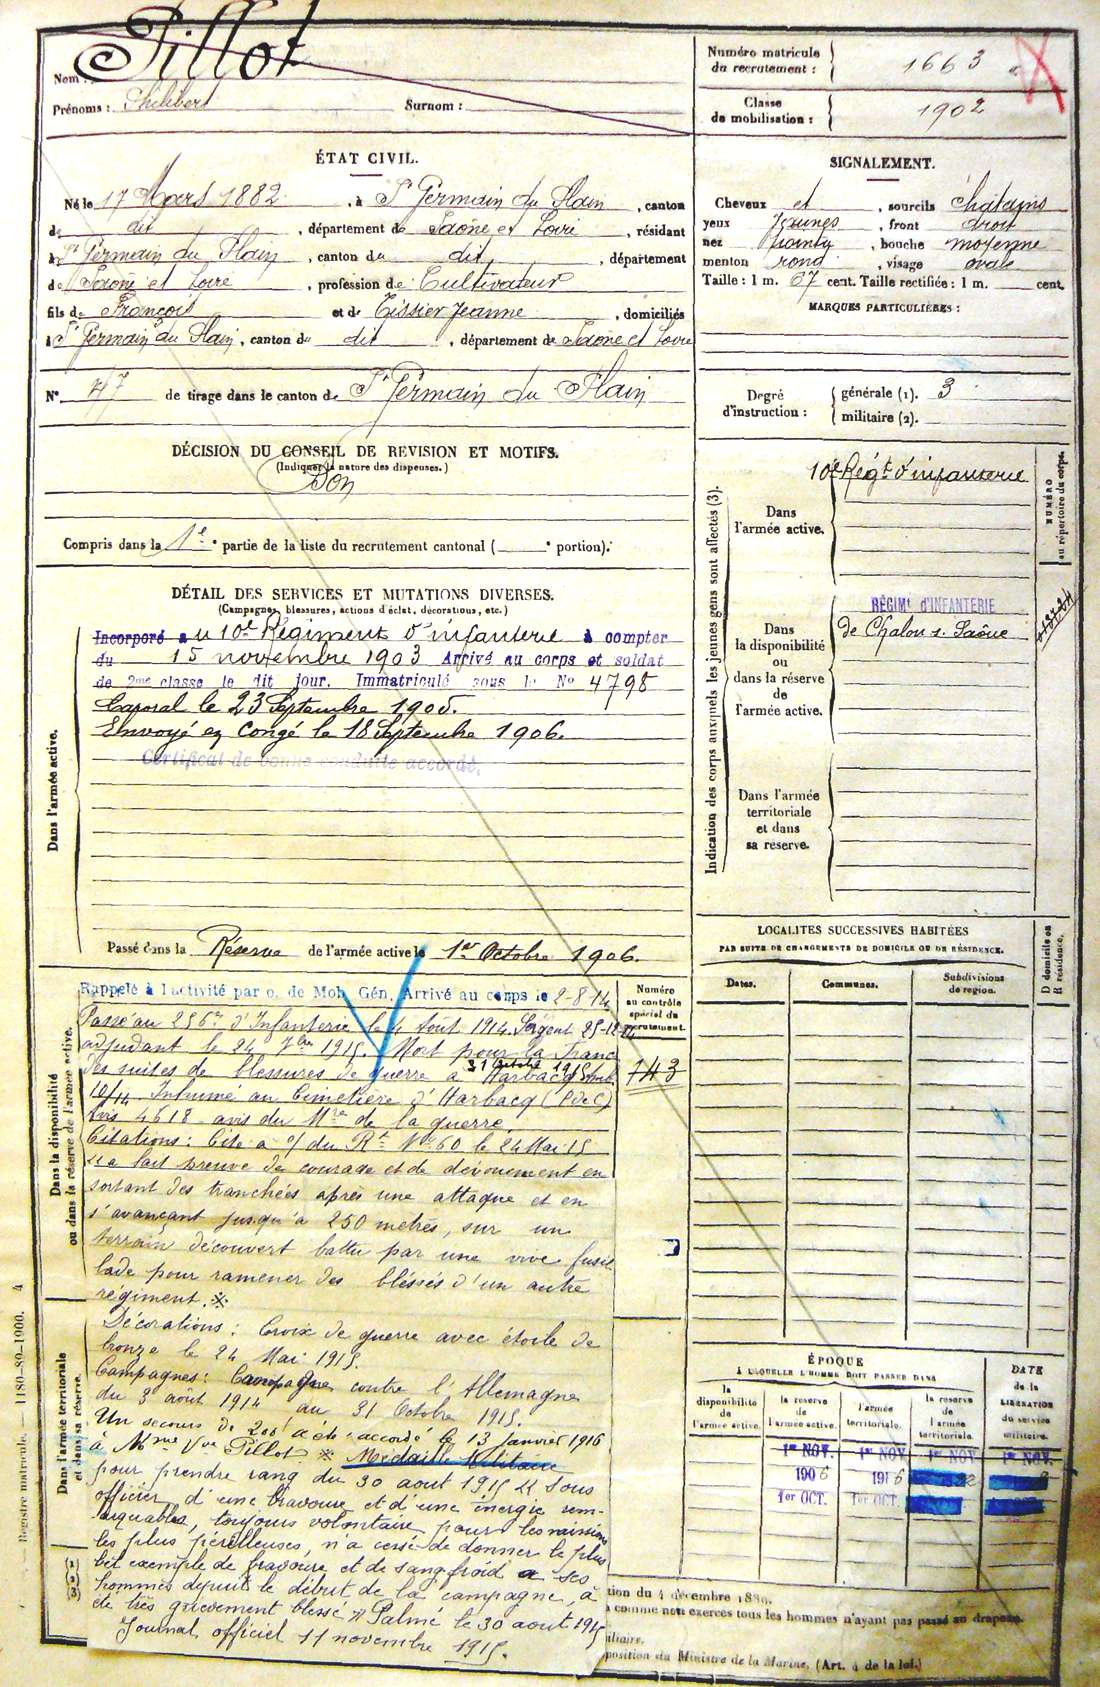 Pillot
Nom :
Prénoms : Philibert Surnom :
Numéro matricule du recrutement : 1663
Classe de mobilisation : 1902
ÉTAT CIVIL.
Né le 17 Mars 1882, à St Germain du Plain, canton
de dit, département de Saône et Loire, résidant
à St Germain du Plain, canton du dit, département
de Saône et Loire, profession de Cultivateur
fils de François et de Tissier Jeanne, domiciliés
à St Germain du Plain, canton du dit, département de Saône et Loire
N° 47 de tirage dans le canton de St Germain du Plain
SIGNALEMENT.
Cheveux et, sourcils chatains
yeux Jaunes, front droit
nez pointu, bouche moyenne
menton rond, visage ovale
Taille : 1 m. 67 cent. Taille rectifiée : 1 m. cent.
MARQUES PARTICULIÈRES :
Degré d'instruction : générale (1). 3
militaire (2).
DÉCISION DU CONSEIL DE REVISION ET MOTIFS.
(Indiquer la nature des dispenses.)
Bon
Compris dans la 1e partie de la liste du recrutement cantonal ( e portion).
DÉTAIL DES SERVICES ET MUTATIONS DIVERSES.
(Campagnes, blessures, actions d'éclat, décorations, etc.)
Dans l'armée active.
Incorporé au 10e Régiment d'infanterie à compter
du 15 novembre 1903 Arrivé au corps et soldat
de 2me classe le dit jour. Immatriculé sous le No 4798
Caporal le 23 Septembre 1905.
Envoyé en Congé le 18 Septembre 1906.
Certificat de bonne conduite accordé.
Passé dans la Réserve de l'armée active le 1er Octobre 1906.
Indication des corps auxquels les jeunes gens sont affectés (3).
Dans l'armée active.
10e Régt d'infanterie
NUMÉRO au répertoire du corps.
Dans la disponibilité ou dans la réserve de l'armée active.
RÉGIMt d'INFANTERIE
de Chalon s. Saône
Dans l'armée territoriale et dans sa réserve.
LOCALITES SUCCESSIVES HABITÉES
PAR SUITE DE CHANGEMENTS DE DOMICILE OU DE RÉSIDENCE.
Dates.
Communes.
Subdivisions de region.
D domicile ou R résidence.
Dans la disponibilité ou dans la réserve de l'armée active.
Numéro au contrôle spécial du recrutement.
743
Rappelé à l'activité par o. de Mob. Gén. Arrivé au corps le 2-8-14
Passé au 256me d'Infanterie le 4 Août 1914. Sergent 25-12-14
adjudant le 24 7bre 1915. Mort pour la France
31 octobre 1915
des suites de blessures de guerre à Harbacq
Inhumé au Cimetière d'Harbacq (P de C)
avis 4618 avis du Mre de la guerre
Citations : Cité à o/ du Rt No 60 le 24 Mai 15
a fait preuve de courage et de dévouement en
sortant des tranchées après une attaque et en
s'avançant jusqu'à 250 metres, sur un
terrain découvert battu par une vive fusil
lade pour ramener des bléssés d'un autre
régiment. ※
Décorations : Croix de guerre avec étoile de
bronze le 24 Mai 1915.
Campagnes : Campagne contre l'Allemagne
du 3 août 1914 au 31 Octobre 1915.
Un secours de 200f a été accordé le 13 janvier 1916
à Mme Vve Pillot ※ Médaille Militaire
pour prendre rang du 30 aout 1915 Sous
officier d'une bravoure et d'une énergie rem-
arquables, toujours volontaire pour les missions
les plus périlleuses, n'a cessé de donner le plus
bel exemple de bravoure et de sang froid à ses
hommes depuis le début de la campagne, à
été très grièvement blessé Palmé le 30 aout 1915
Journal officiel 11 novembre 1915.
Dans l'armée territoriale et dans sa réserve.
(1)
(2)
(3)
ÉPOQUE
À LAQUELLE L'HOMME DOIT PASSER DANS
la disponibilité de l'armée active.
la reserve de l'armée active.
l'armée territoriale.
la reserve de l'armée territoriale.
DATE de la LIBÉRATION du service militaire.
1er NOV. 1er NOV. 1er NOV. 1er NOV.
1906 1916
1er OCT. 1er OCT.
tion du 4 décembre 1889.
comme non exercés tous les hommes n'ayant pas passé au drapeau.
iliaire.
position du Ministre de la Marine. (Art. 4 de la loi.)
Registre matricule. — 1180-89-1900. 4